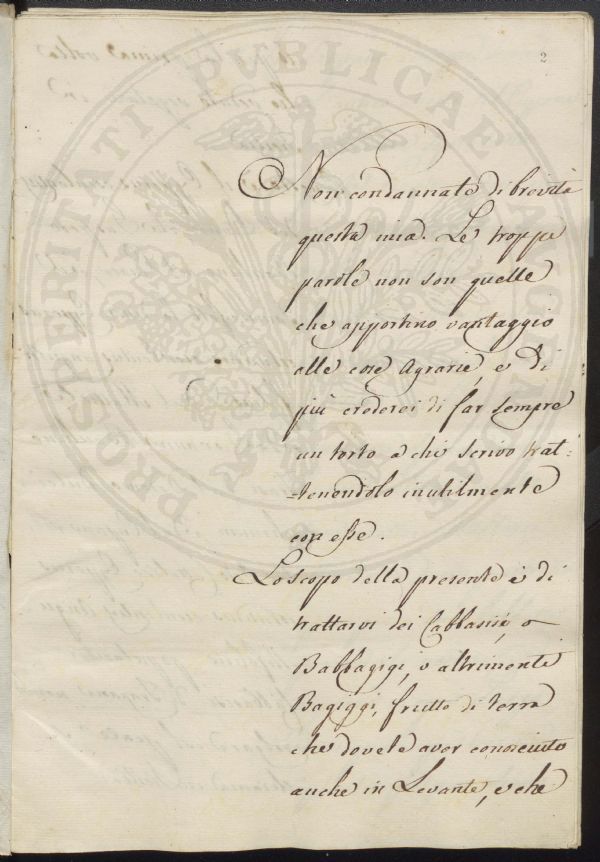 2
Non condannate di brevità
questa mia. Le troppe
parole non son quelle
che apportino vantaggio
alle cose Agrarie, e di
più crederei di far sempre
un torto a chi scrivo trat=
=tenendolo inutilmente
con esse.
Lo scopo della presente è di
trattarvi dei Cabbasisi, o
Babbagigi, o altrimenti
Bagiggi, frutto di terra
che dovete aver conosciuto
anche in Levante, e che
PROSPERITATI PUBLICAE